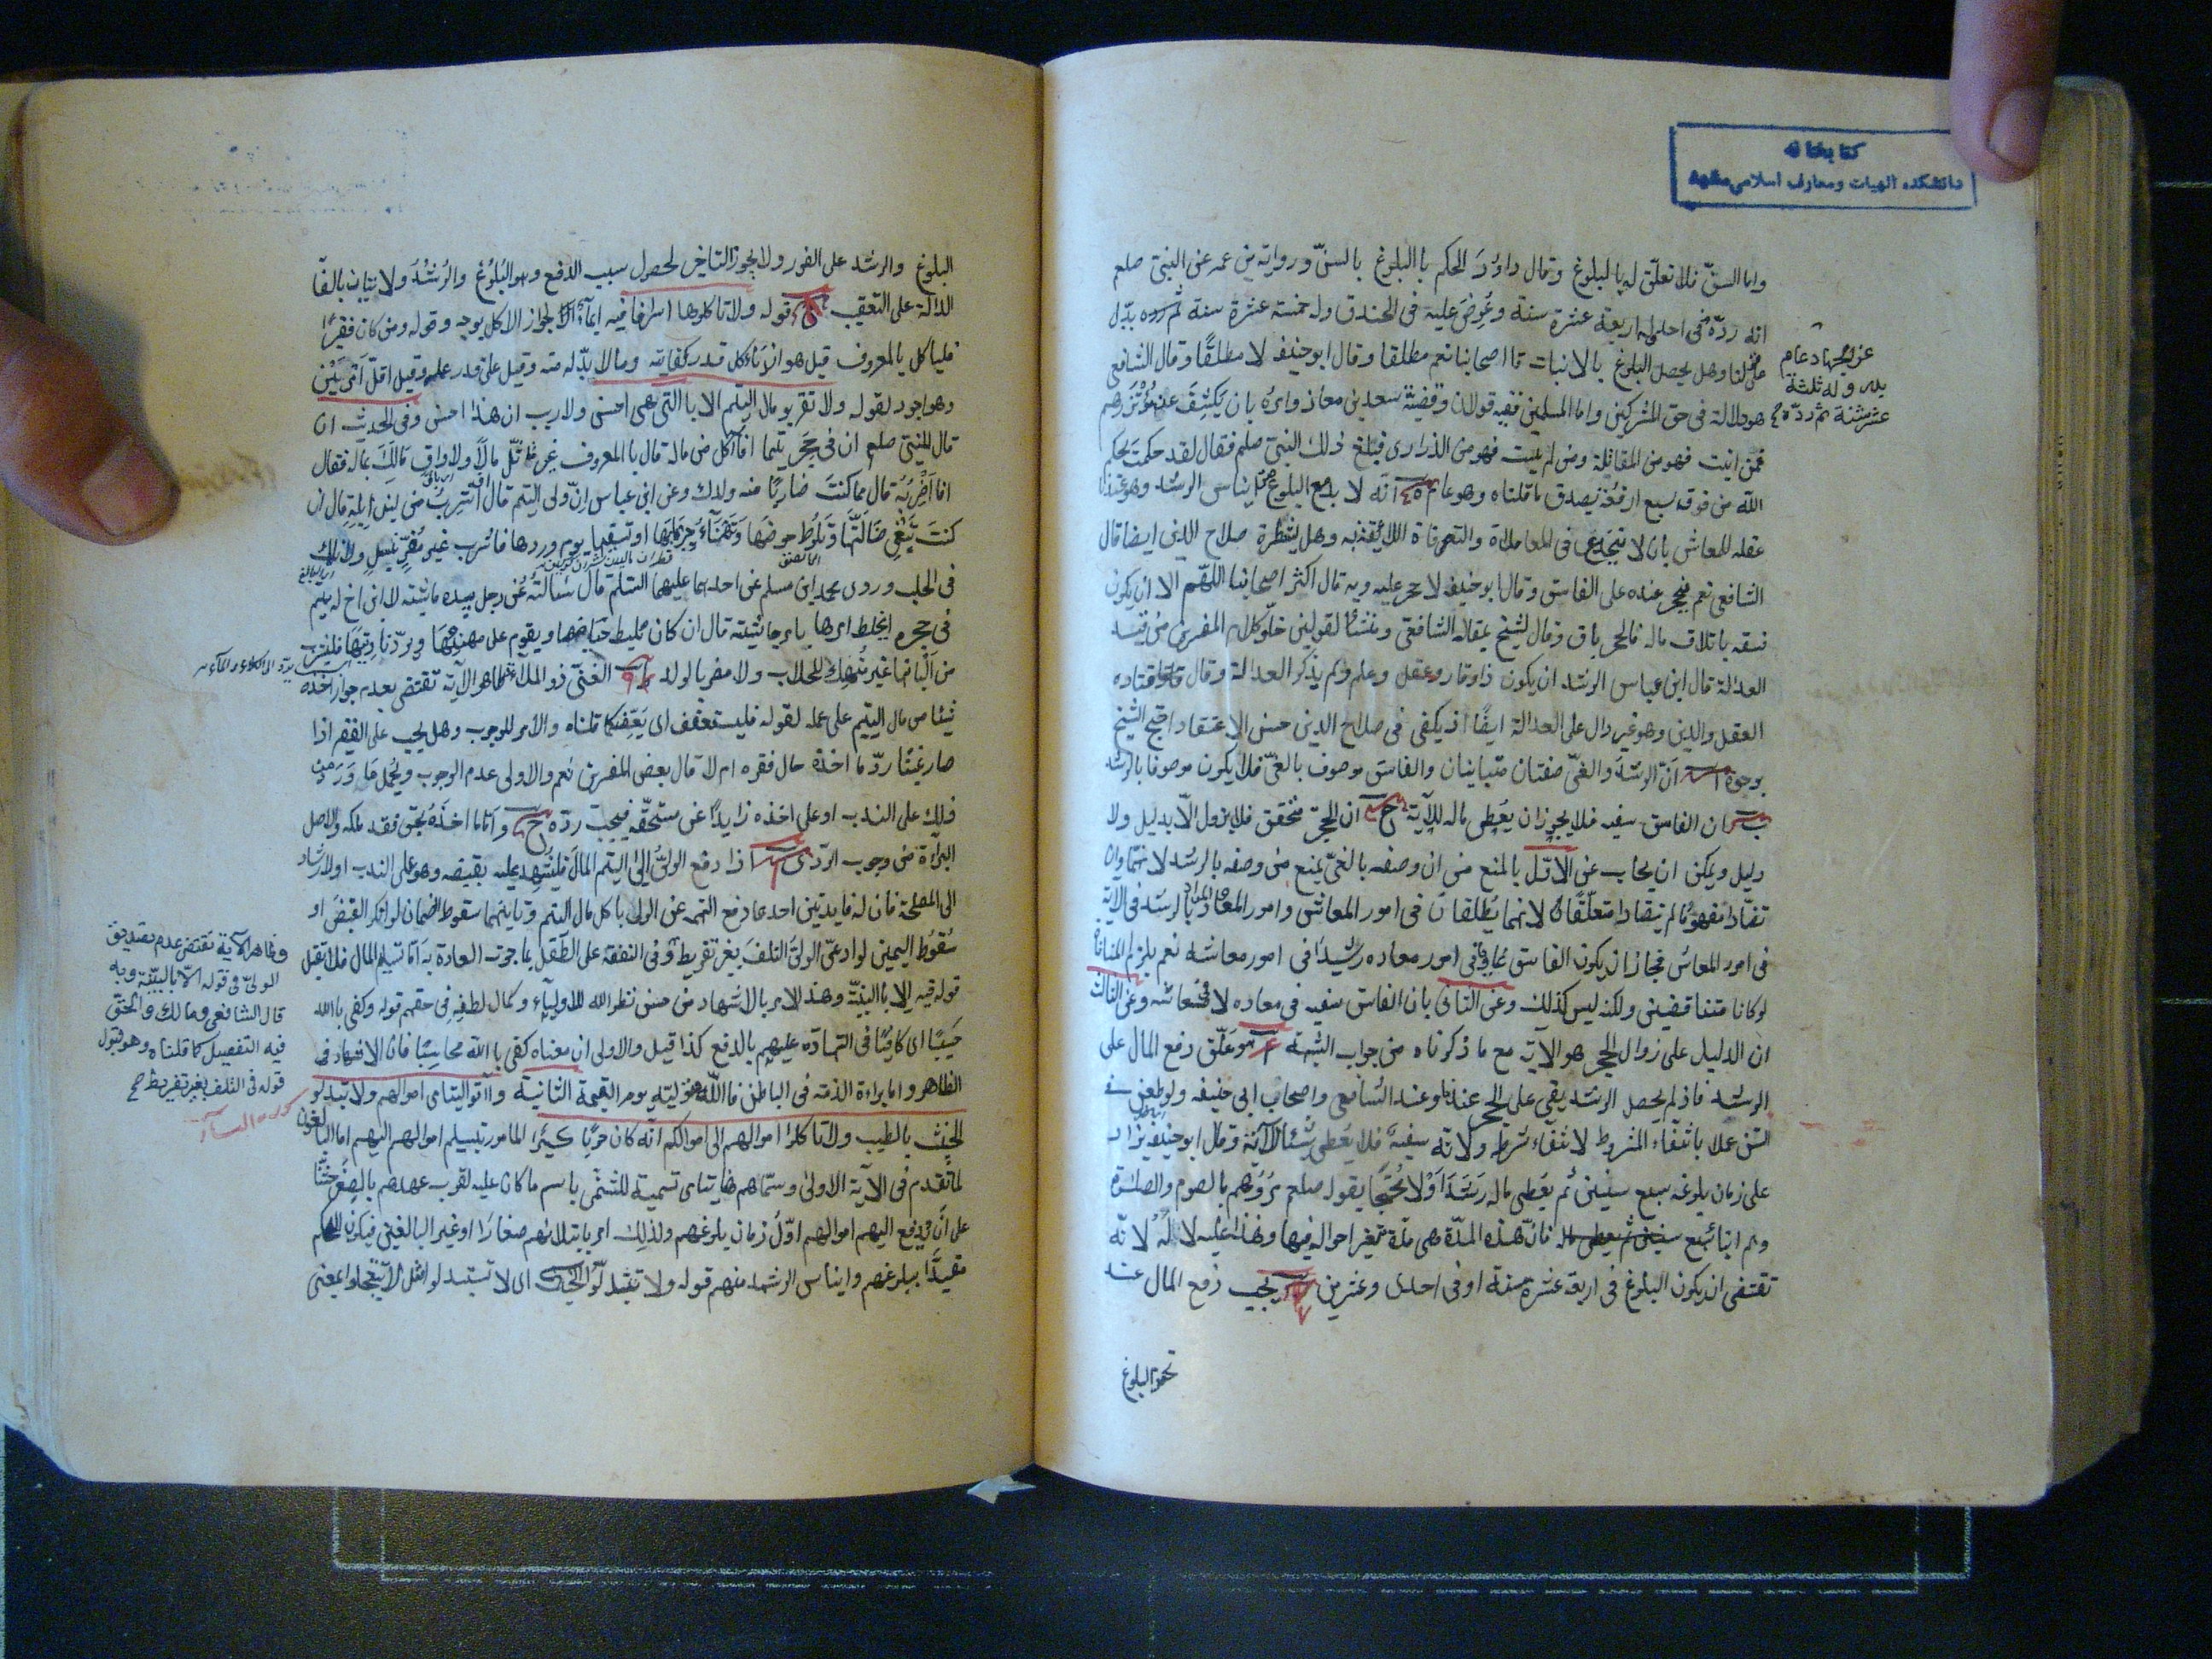 كتابخانه
دانشكده الهيات ومعارف اسلامى مشهد
واما السنّ فلا تعلّق له بالبلوغ وقال داود لا حكم با البلوغ بالسنّ ورواية بن عمر عن النبىّ صلعم
انه ردّه فى احد وله اربعة عشرة سنة وعُرِضَ عليه فى الخندق وله خمسة عشرة سنة ثم ردّه يدّل
عن الجهاد عام
بدر وله ثلثة
عشر سنة ثم ردّه
على قلنا وهل يحصل البلوغ بالانبات قا اصحابنا نعم مطلقا وقال ابوحنيفه لا مطلقًا وقال الشافعى
هو دلالة فى حق المشركين واما المسلمين ففيه قولان وقضيّة سعد بن معاذ وامره بان يكشف عن مؤتزرهم
فمن انبت فهو من المقاتلة ومن لم ينبت فهو من الذرارى فبلغ ذلك النبىّ صلعم فقال لقد حكمت بحكم
الله من فوق سبع ارقعة يصدق ما قلناه وهو عام انّه لا بد مع البلوغ من ايناس الرشد وهو عندنا
عقله للمعاش بان لا ينخدع فى المعاملاة والتصرفاة اللايقة به وهل يشترط صلاح الدين ايضا قال
الشافعى نعم فيحجر عنده على الفاسق وقال ابوحنيفه لا حجر عليه وبه قال اكثر اصحابنا اللهّم الا ان يكون
فسقه باتلاف ماله فالحجر باق وقال الشيخ بمقالة الشافعى ومنشأ القولين خلّو كلام المفسرين من قيد
العدالة قال ابن عباس الرشد ان يكون ذا وقار وعقل وعلم ولم يذكر العدالة وقال قتاده
العقل والدين وهو غير دال على العدالة ايضًا اذ يكفى فى صلاح الدين حسن الاعتقاد احتج الشيخ
بوجوه ا انّ الرشد والغىّ صفتان متباينان والفاسق موصوف بالغىّ فلا يكون موصوفا بالرشد
ب ان الفاسق سفيه فلا يجوز ان يعطى ماله للآية ج ان الحجر متحقق فلا يزول الّا بدليل ولا
دليل ويمكن ان يجاب عن الاوّل بالمنع من ان وصفه بالغىّ يمنع من وصفه بالرشد لانهما وان
تضادا مفهومًا لم يتضادا متعلّقا لانهما يطلقان فى امور المعاش وامور المعاد والمراد بالرشد فى الآية
فى امور المعاش فجاز ان يكون الفاسق غاويا فى امور معاده رشيدًا فى امور معاشه نعم يلزم المنافاة
لو كانا متناقضين ولكنه ليس كذلك وعن الثانى بان الفاسق سفيه فى معاده لا فى معاشه وعن الثالث
ان الدليل على زوال الحجر هو الآية مع ما ذكرناه من جواب الشبهة علّق دفع المال على
الرشد فاذ لم يحصل الرشد بقى على الحجر عندنا وعند الشافعى واصحاب ابى حنيفه ولو طعن فى
السّن عملا بانتفاء المشروط لانتفاء شرطه ولانه سفيه فلا يعطى شيئا للآية وقال ابوحنيفه يزاد
على زمان بلوغه سبع سنين ثم يعطى ماله رَشَدَ اَوْ لا محتجّا بقوله صلعم مروهم بالصوم والصلوة
وهم ابناء سبع فانّ هذه المدّة هى مدّة تتغير احواله فيها وهذا عليه لا لَهُ لانّه
تقتضى ان يكون البلوغ فى اربعة عشرة سنة او فى احدى وعشرين يجب دفع المال عند
تحقق البلوغ
البلوغ والرشد على الفور ولا يجوز التاخير لحصول سبب الدفع وهو البلوغ والرشد ولاتيان بالفا
الدالة على التعقيب قوله ولا تاكلوها اسرافا فيه ايماء الى جواز الاكل بوجه وقوله ومن كان فقيرًا
فلياكل بالمعروف قيل هو ان ياكل قدر كفايته وما لا بدّ له منه وقيل على قدر عمله وقيل اقلّ الامرين
وهو اجود لقوله ولا تقربو مال اليتيم الا با التى هى احسن ولا ريب ان هذا احسن وفى الحديث ان
قال للنبىّ صلعم ان فى حجرى يتيما افآكل من ماله قال با المعروف غير متاثّل مالًا ولا واق مالك بماله فقال
افا اضربه قال مما كنت ضاربًا منه ولدك وعن ابن عباس انّ ولى اليتيم قال أفاشرب من لبن ابله قال ان
كنت تبغى ضالّتها وتلوط حوضها وتهنأ جرباها وتسقيها يوم وردها فاشرب غير مُضِرّ بنسل ولا ناهك
فى الحلب وروى محمد بن مسلم عن احدهما عليهما السّلم قال سالته عن رجل بيده ماشية لابن اخ له يتيم
فى حجره ايخلط امرها بامر ماشيته قال ان كان يليط حياضها ويقوم على مهنتها ويردّ نادّتها فليشرب
من البانها غير مُنهِك للحلاب ولا مضر بالولد الغنىّ ذو الملاء ظاهر الآية تقتضى بعدم جواز اخذه
شيئا من مال اليتيم على عمله لقوله فليستعفف اى يعفّ كما قلناه والامر للوجوب وهل يجب على الفقير اذا
صار غنيًا ردّ ما اخذه حال فقره ام لا قال بعض المفسرين نعم والاولى عدم الوجوب ويحمل ما ورد من
ذلك على الندب او على اخذه زايدًا عن مستحقّه فيجب ردّه ح وامّا ما اخذه بحق فقد ملكه والاصل
البرآءة من وجوب الردّ اذا دفع الولىّ الى اليتيم المال فليشهد عليه بقبضه وهو على الندب او لارشاد
الى المصلحة فان له فايدتين احدهما دفع التهمه عن الولى باكل مال اليتيم وثانيتهما سقوط الضمان لو انكر القبض او
سُقُوط اليمين لو ادعى الولىّ التلف بغير تفريط وفى النفقة على الطفل بما جرت العادة به امّا تسليم المال فلا تقبل
قوله فيه الا با البيّنة وهذا الامر بالاشهاد من حسن نظر الله للاولياء وكمال لطفه فى حقهم قوله وكفى بالله
حسيبًا اى كافيًا فى الشهادة عليهم بالدفع كذا قيل والاولى ان معناه كفى با الله محاسبًا فان الاشهاد فى
الظاهر واما براءة الذمة فى الباطن فا الله متولّيه يوم القيمة الثانية وآتو اليتامى اموالهم ولا تتبدلو
الخبيث بالطيب ولا تاكلوا اموالهم الى اموالكم انّه كان حوبًا كبيرًا المامور بتسليم اموالهم اليهم اما البالغون
لما تقدم فى الآية الاولى وسمّاهم هنا يتامى تسمية للشئى باسم ما كان عليه لقرب عهدهم بالصغر حثّا
على ان يدفع اليهم اموالهم اوّل زمان بلوغهم ولذلك امر بابتلائهم صغارًا او غير البالغين فيكون الحكم
مقيدًا ببلوغهم وايناس الرشد منهم قوله ولا تتبدلو الخبيث اى لا تستبدلوا
وظاهر الآية تقتضى عدم تصديق
الولىّ فى قوله الّا بالبيّنة وبه
قال الشافعى ومالك والحقّ
فيه التفصيل كما قلناه وهو قبول
قوله فى التلف بغير تفريط صح